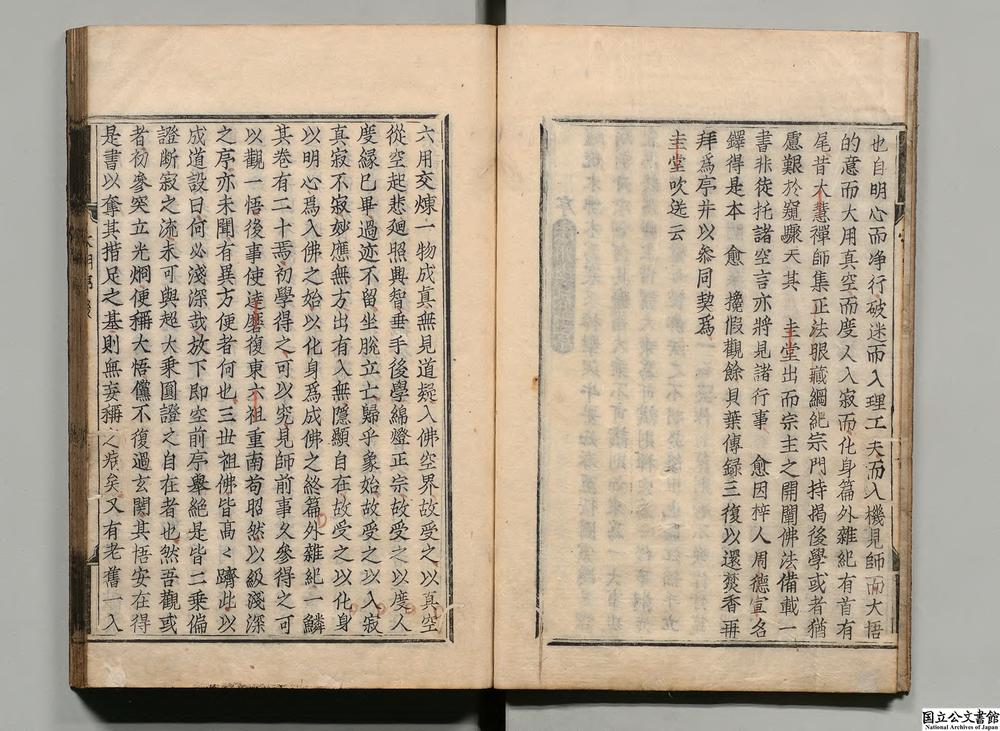 也自明心而净行破迷而入理工夫而入機見師而大悟
的意而大用真空而度人入寂而化身篇外雜紀有首有
尾昔大慧禪師集正法眼藏綱紀宗門持揭後學或者猶
慮艱於窺驟天其　圭堂出而宗主之開闡佛法備載一
書非徒托諸空言亦將見諸行事　愈因梓人周德宣名
鐸得是本　愈　攙假觀餘貝葉傳録三復以還焚香再
拜爲序并以參同契爲
圭堂吹送云
六用交煉一物成真無見道疑入佛空界故受之以真空
從空起悲廻照典智垂手後學綿燈正宗故受之以度人
度緣已畢過迹不留坐脫立亡歸乎象始故受之以入寂
真寂不寂妙應無方出有入無隱顯自在故受之以化身
以明心爲入佛之始以化身爲成佛之終篇外雜紀一鱗
其卷有二十焉初學得之可以究見師前事久參得之可
以觀一悟後事使達磨復東六祖重南苟昭然以級淺深
之序亦未聞有異方便者何也三世祖佛皆髙々躋此以
成道設曰何必淺深哉放下即空前序舉絕是皆二乗偏
證断寂之流未可與超大乗圓證之自在者也然吾觀或
者初參突立光烱便稱大悟儻不復過玄関其悟安在得
是書以奪其措足之基則無妄稱之病矣又有老舊一入
國立公文書館
National Archives of Japan